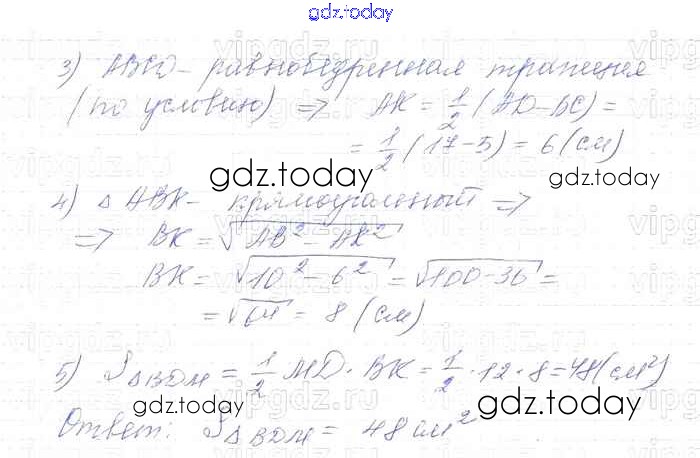 gdz.today
3) ABCD – равнобедренная трапеция
(по условию) ⇒ AK = 1/2 (AD – BC) =
= 1/2 (17 – 5) = 6 (см)
gdz.today gdz.today
4) △ ABK – прямоугольный ⇒
⇒ BK = √(AB² – AK²)
BK = √(10² – 6²) = √(100 – 36) =
= √64 = 8 (см)
5) S△BDM = 1/2 MD · BK = 1/2 · 12 · 8 = 48 (см²)
gdz.today gdz.today
Ответ: S△BDM = 48 см²